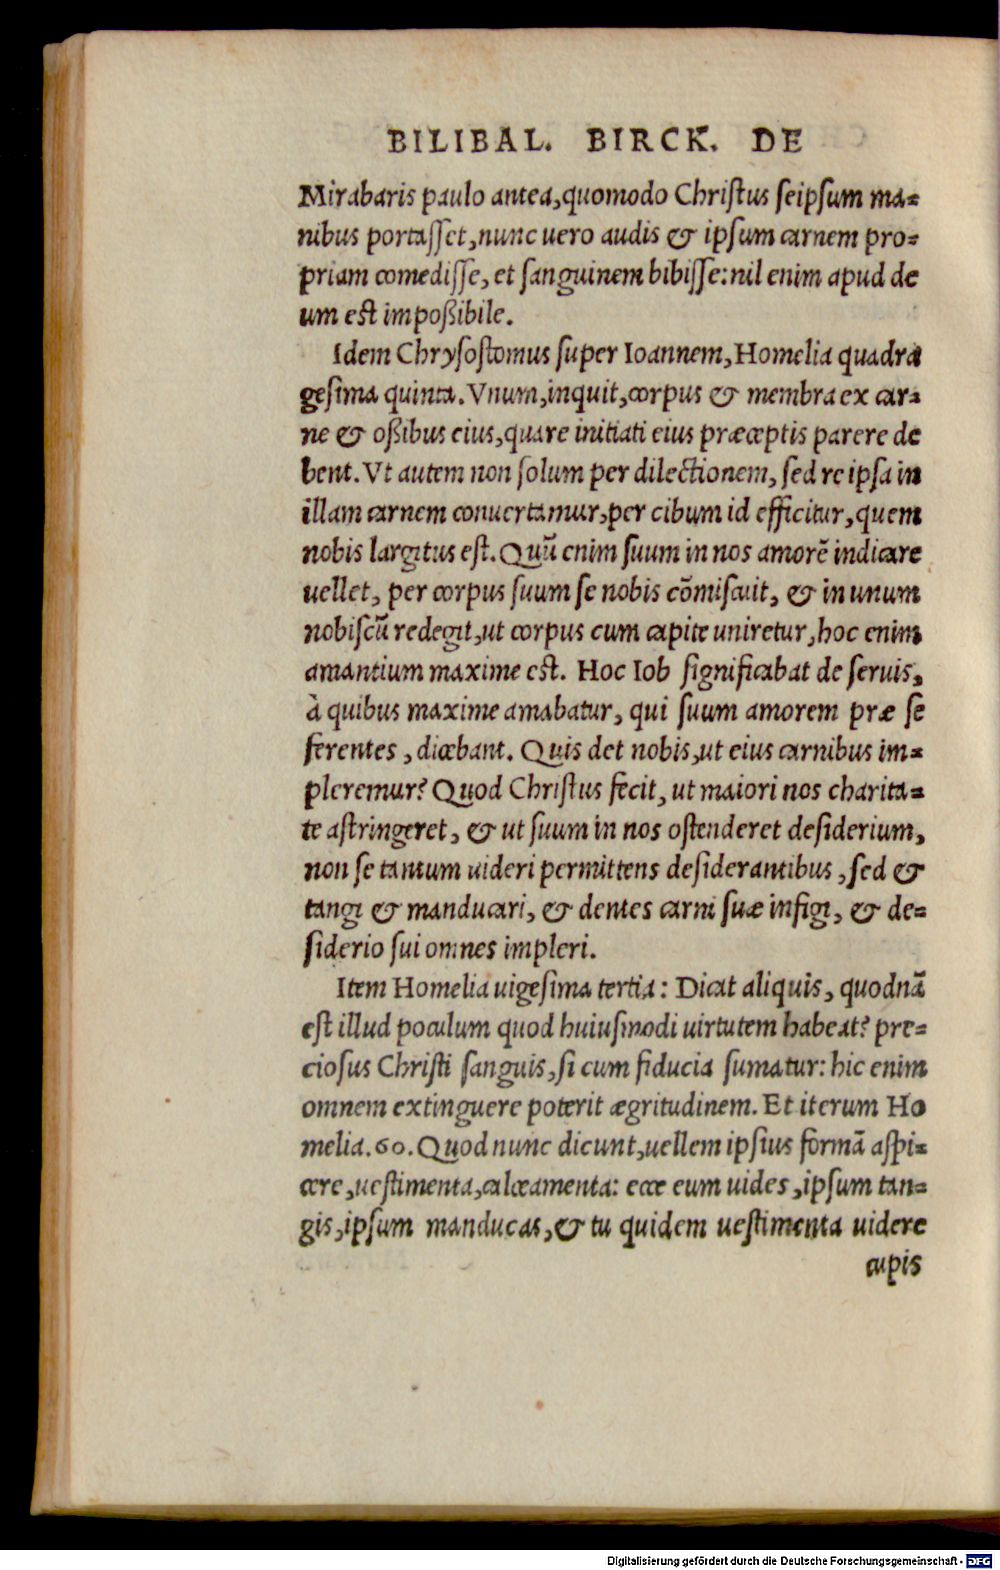 BILIBAL. BIRCK. DE
Mirabaris paulo antea, quomodo Christus seipsum ma-
nibus portasset, nunc uero audis & ipsum carnem pro-
priam comedisse, et sanguinem bibisse: nil enim apud de
um est impoßibile.
Idem Chrysostomus super Ioannem, Homelia quadra
gesima quinta. Vnum, inquit, corpus & membra ex car-
ne & oßibus eius, quare initiati eius præceptis parere de
bent. Vt autem non solum per dilectionem, sed re ipsa in
illam carnem conuertamur, per cibum id efficitur, quem
nobis largitus est. Quū enim suum in nos amorē indicare
uellet, per corpus suum se nobis cōmiscuit, & in unum
nobiscū redegit, ut corpus cum capite uniretur, hoc enim
amantium maxime est. Hoc Iob significabat de seruis,
à quibus maxime amabatur, qui suum amorem præ se
ferentes, dicebant. Quis det nobis, ut eius carnibus im-
pleremur? Quod Christus fecit, ut maiori nos charita-
te astringeret, & ut suum in nos ostenderet desiderium,
non se tantum uideri permittens desiderantibus, sed &
tangi & manducari, & dentes carni suæ infigi, & de-
siderio sui omnes impleri.
Item Homelia uigesima tertia: Dicat aliquis, quodnā
est illud poculum quod huiusmodi uirtutem habeat? pre-
ciosus Christi sanguis, si cum fiducia sumatur: hic enim
omnem extinguere poterit ægritudinem. Et iterum Ho
melia. 60. Quod nunc dicunt, uellem ipsius formā aspi-
cere, uestimenta, calceamenta: ecce eum uides, ipsum tan-
gis, ipsum manducas, & tu quidem uestimenta uidere
cupis
Digitalisierung gefördert durch die Deutsche Forschungsgemeinschaft - DFG